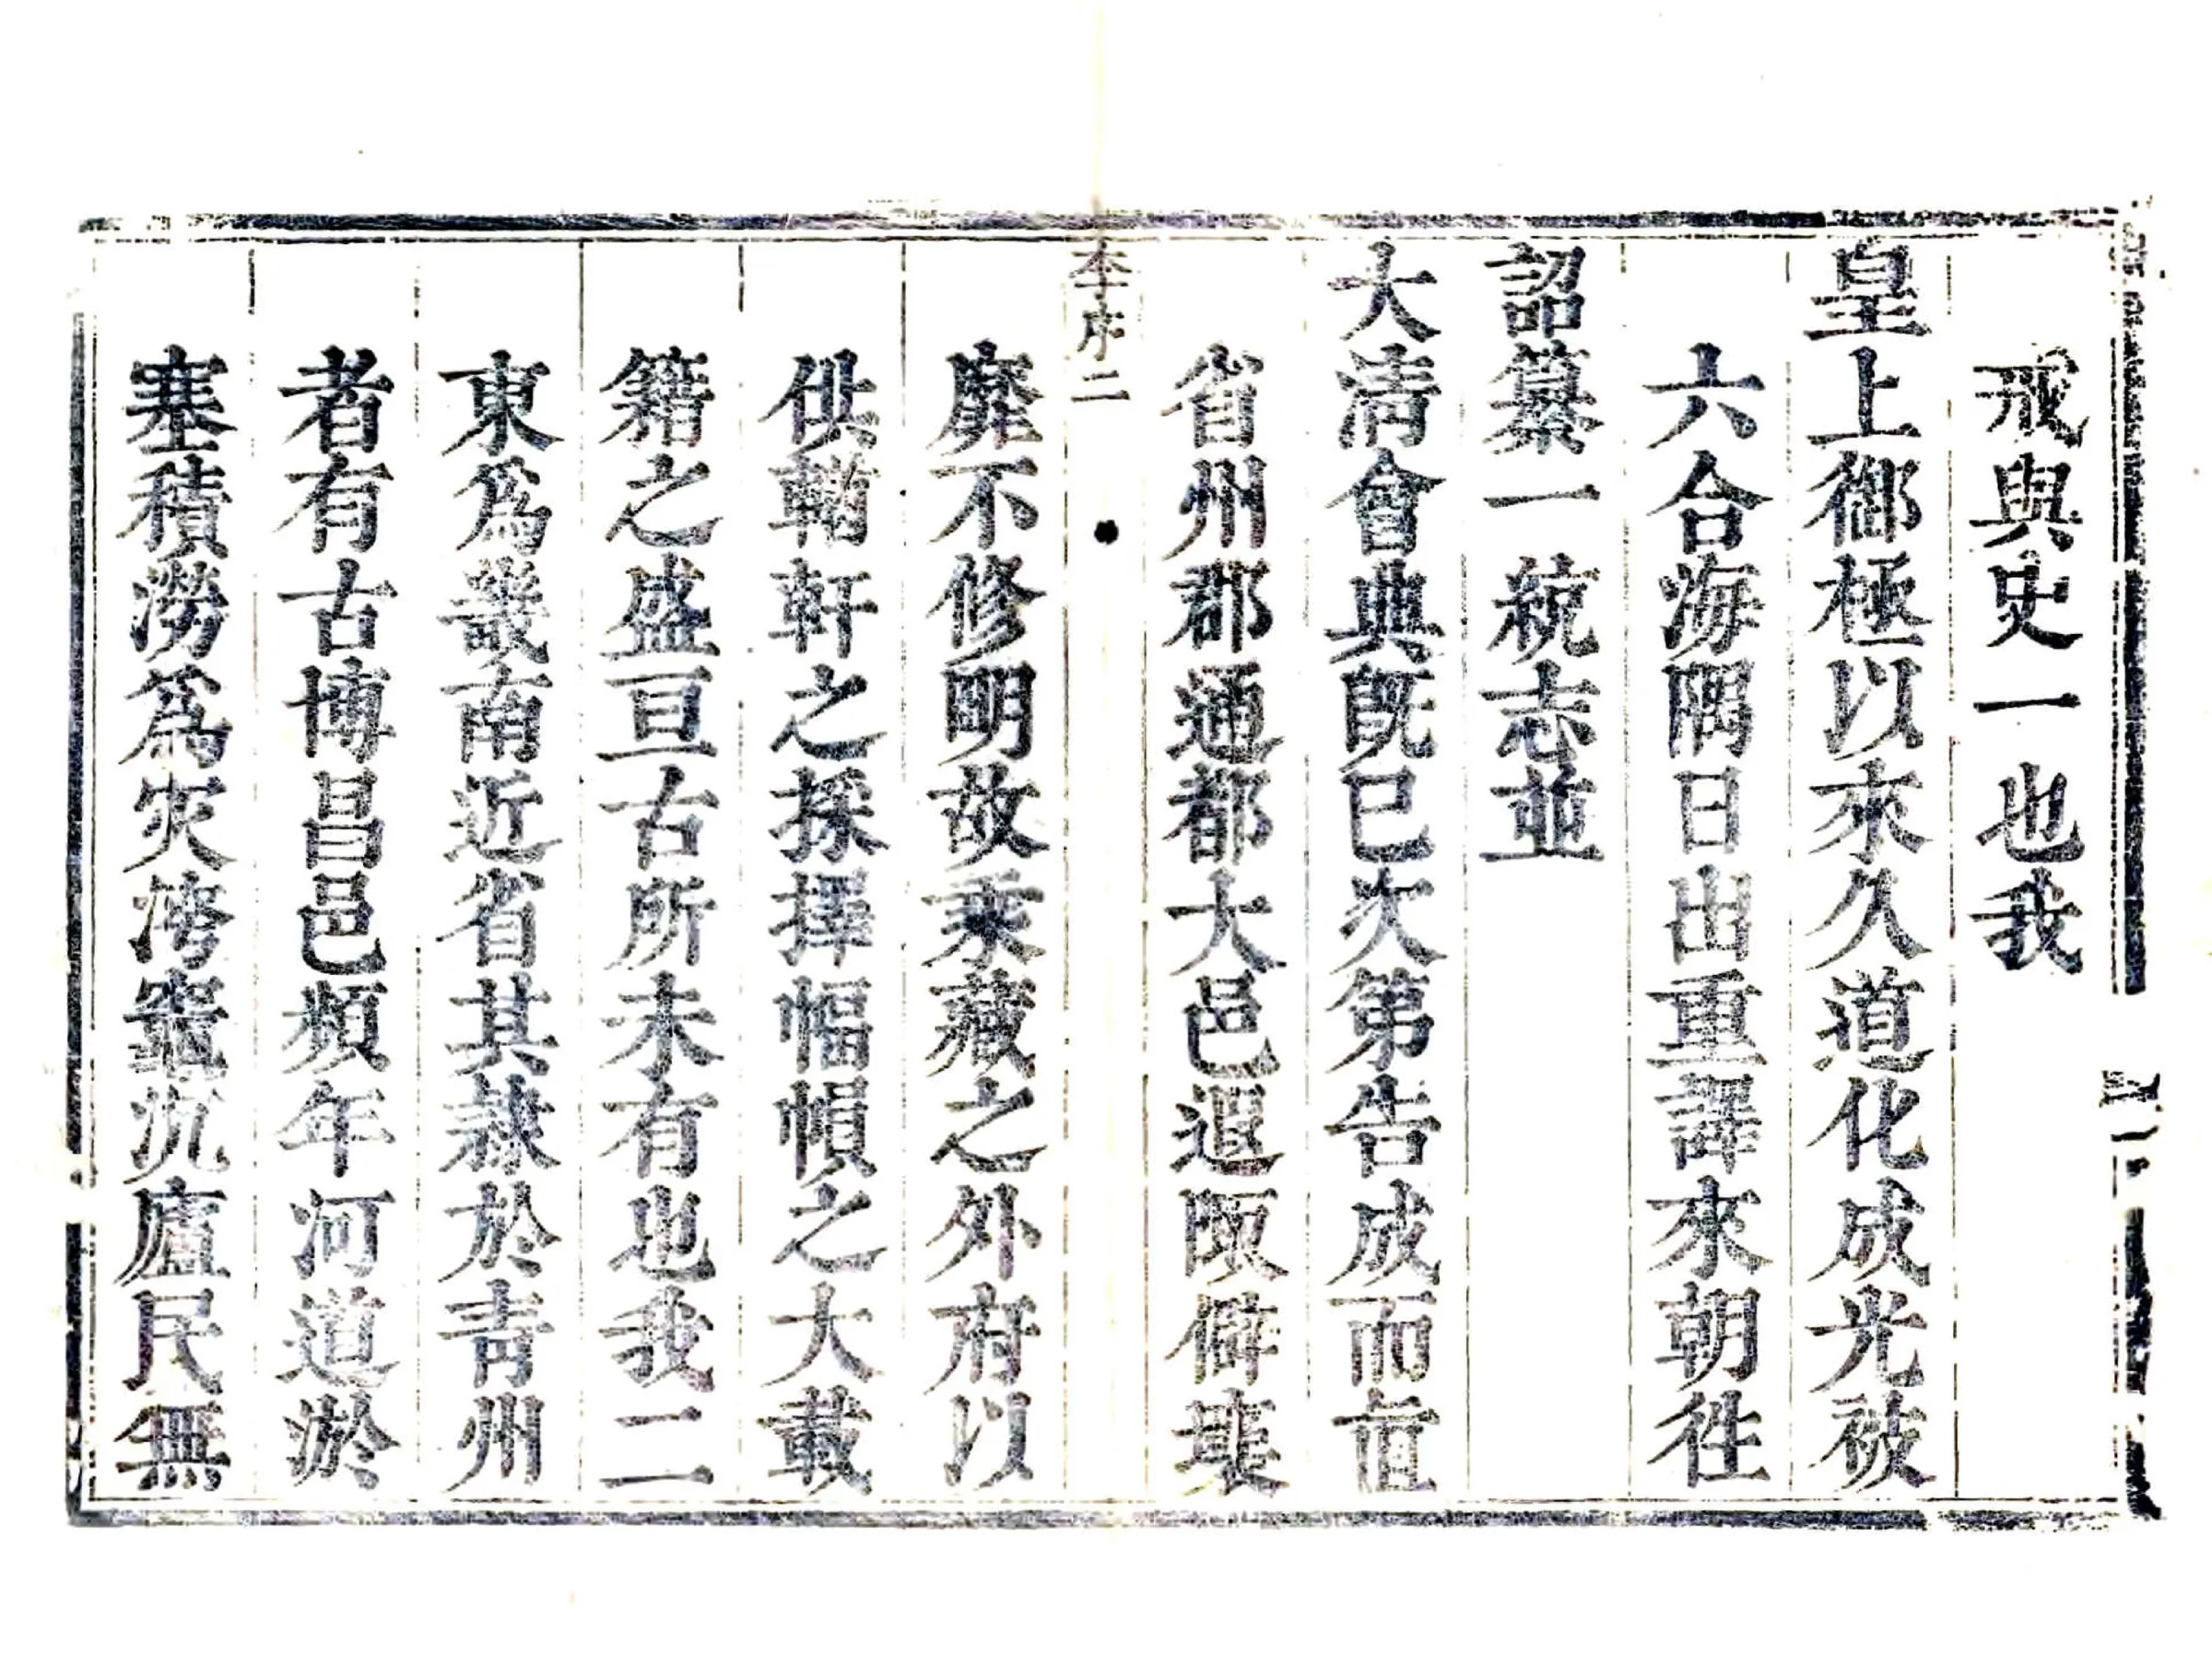 戒與史一也我
皇上御極以來久道化成光被
六合海隅日出重譯來朝徃
詔纂一統志並
大清會典既已次第告成而直
省州郡通都大邑遐陬僻壤
李序 二
靡不修明故乘藏之外府以
供輶軒之採擇幅幀之大載
籍之盛亘古所未有也我二
東為畿南近省其隷於青州
者有古博昌邑頻年河道淤
塞積澇為灾滂竈沉廬民無